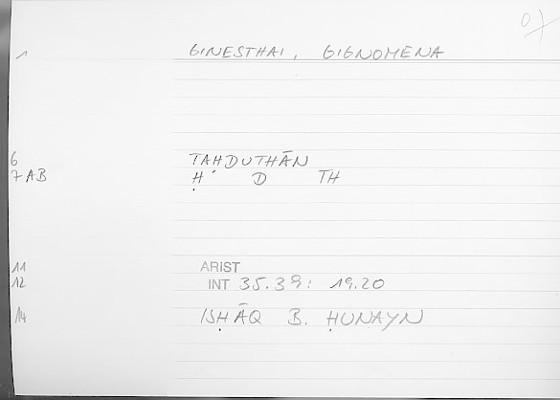 07
1 GINESTHAI, GIGNOMENA
6 TAḤDUTHĀN
7AB Ḥ D TH
11 ARIST
12 INT 35.39: 19.20
14 ISḤĀQ B. ḤUNAYN